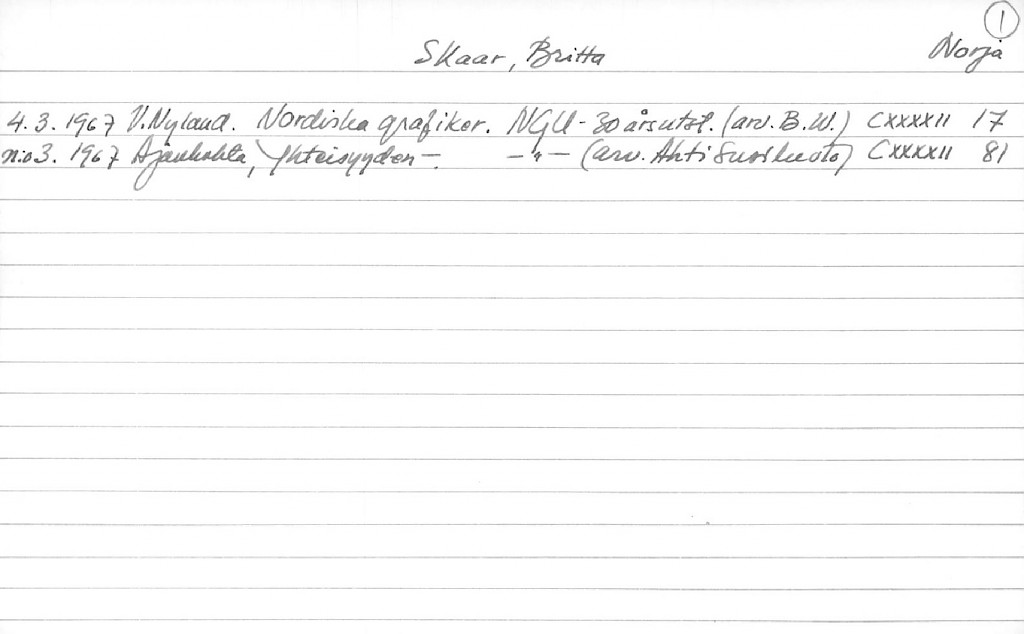 1
Skaar, Britta Norja
4.3.1967 V. Nyland. Nordiska grafiker. NGU - 30 årsutst. (arv. B.W.) CXXXXII 17
n:o 3. 1967 Ajankohta, Yhteisyyden - -"- (arv. Ahti Susiluoto) CXXXXII 81